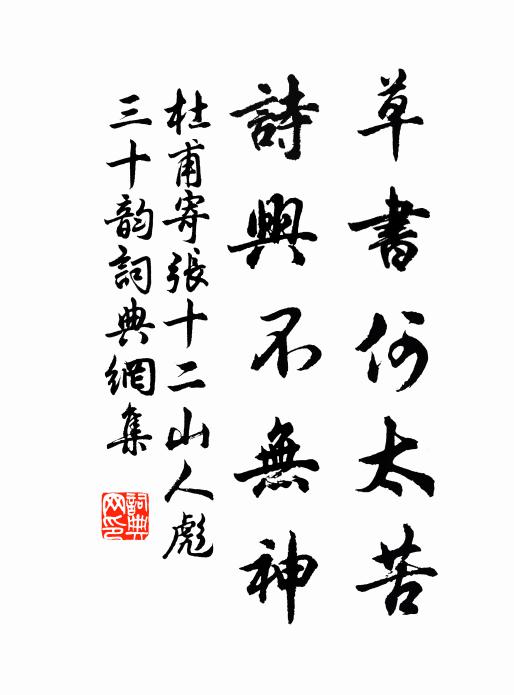 草書何太苦
詩興不無神
杜甫寄張十二山人彪
三十韵詞典網集
詞典网印